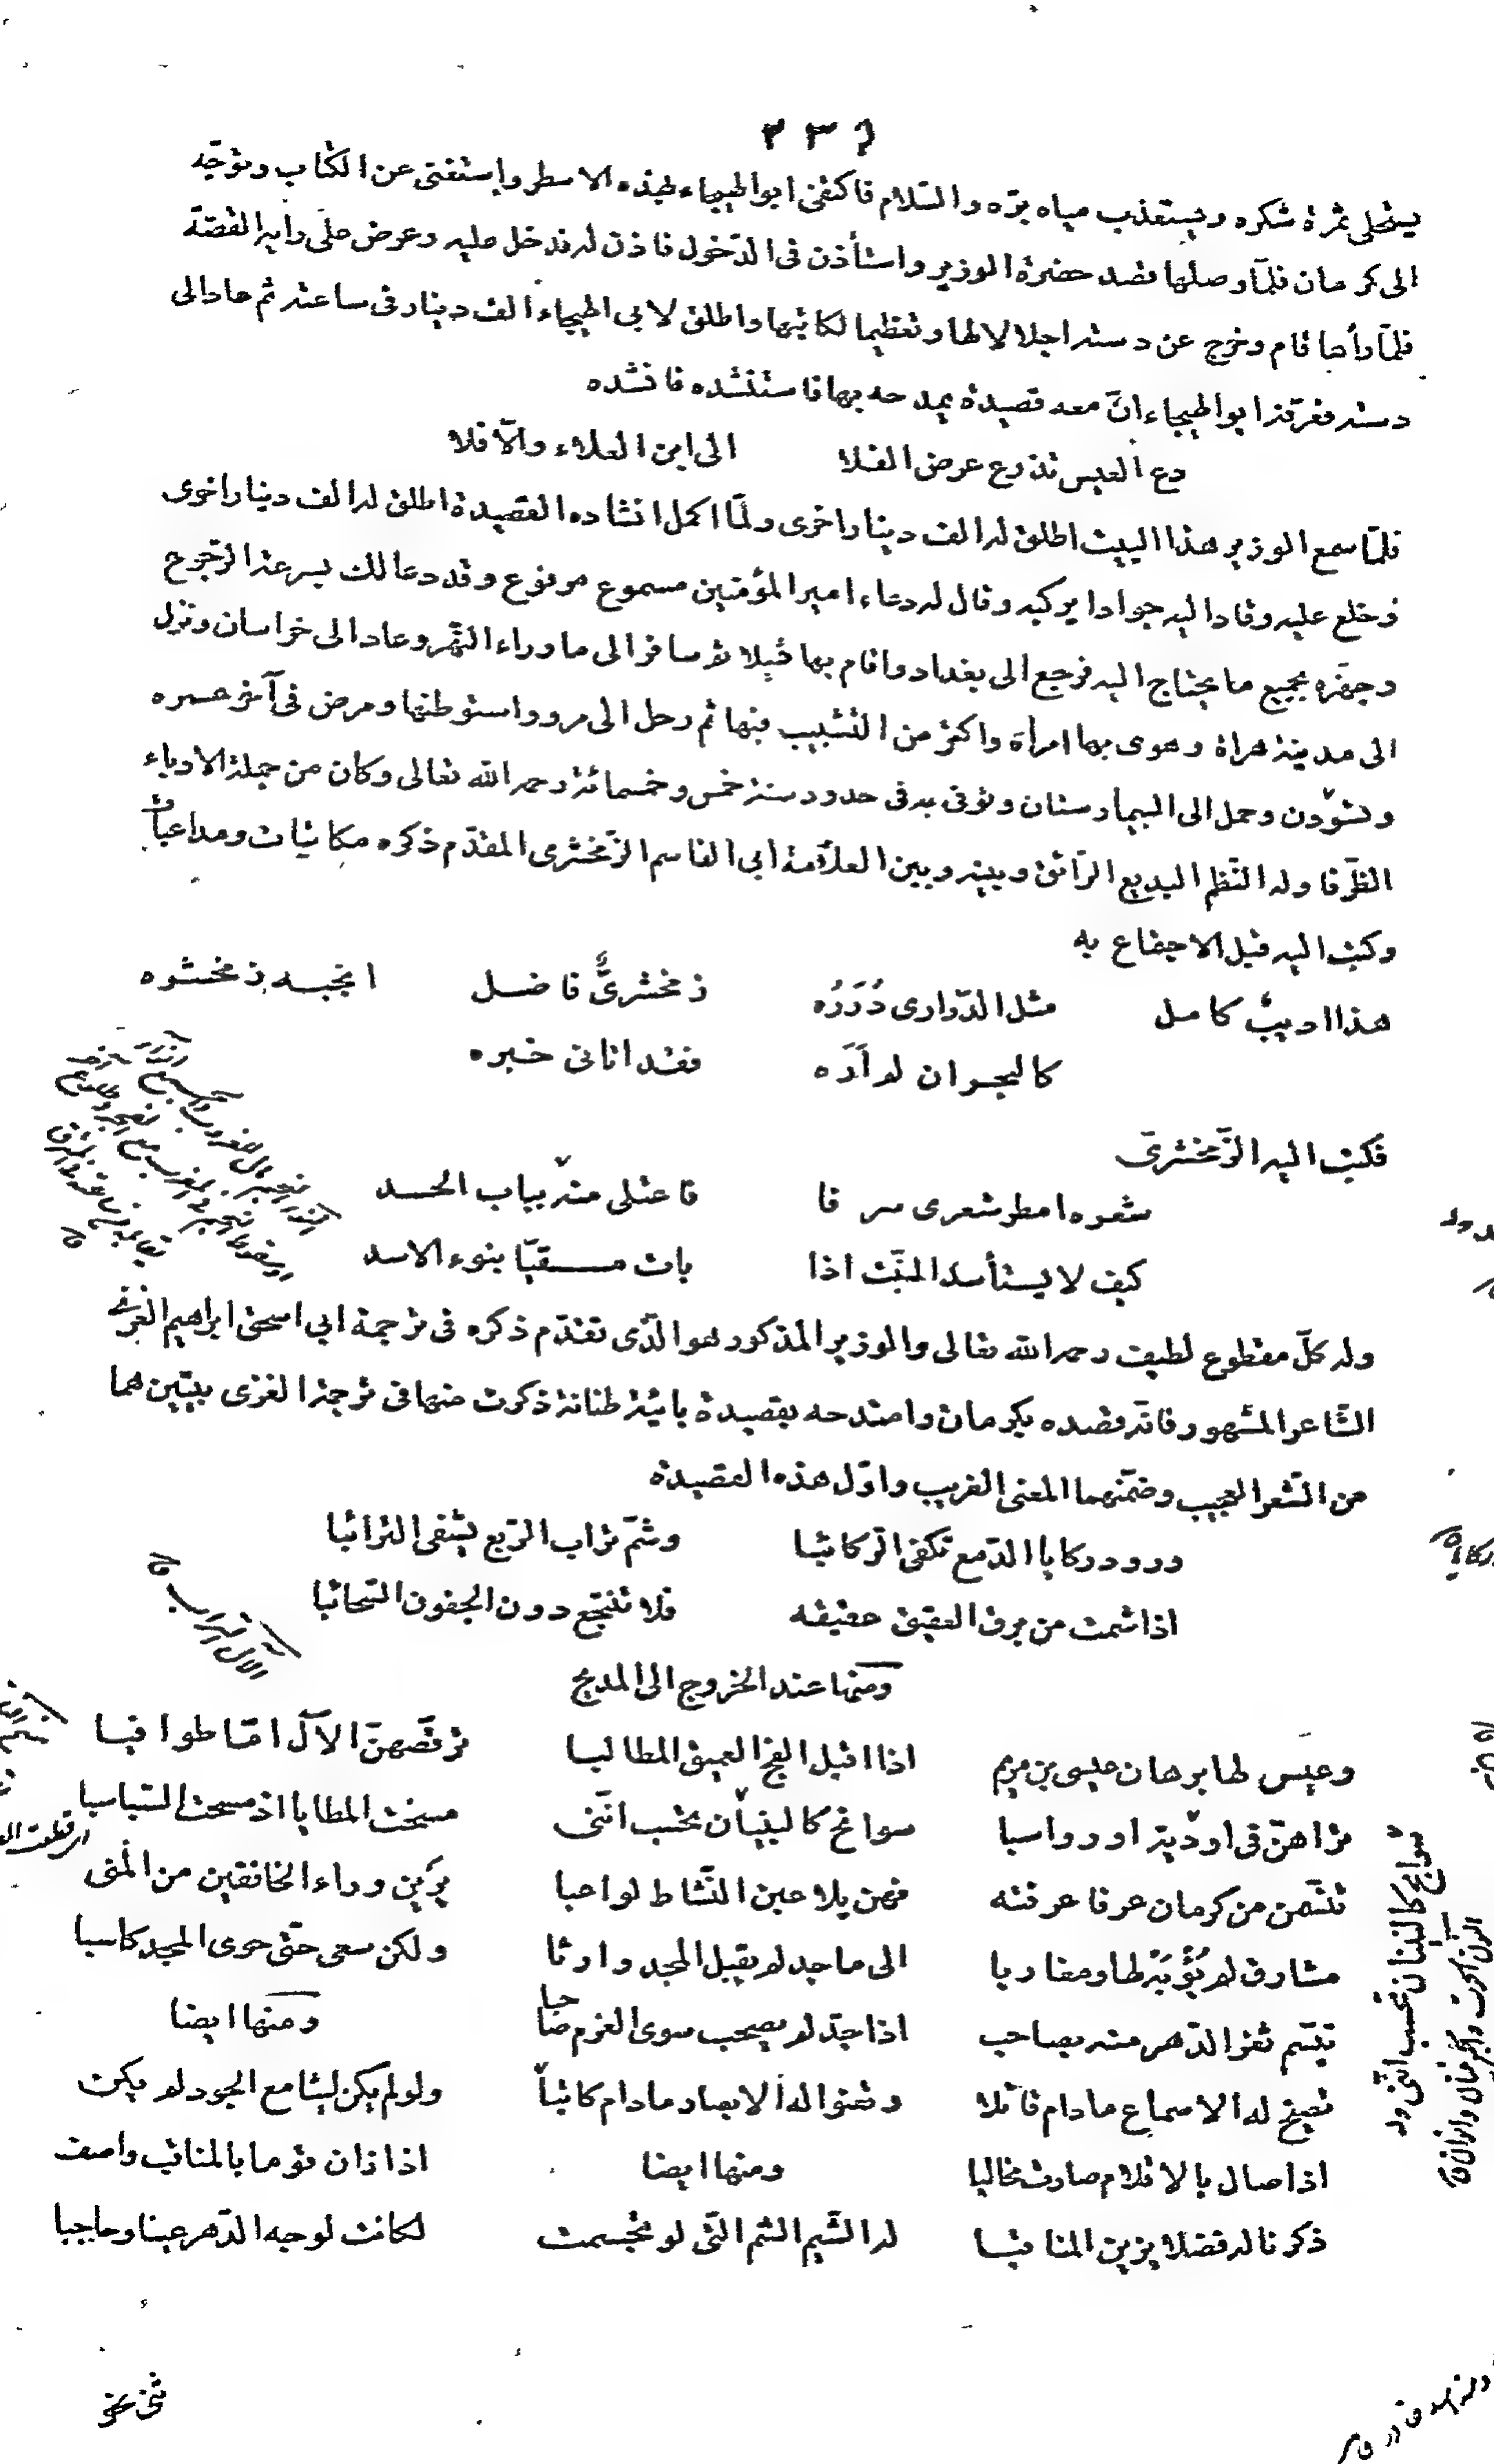 ٣٣٤
يستحلى ثمرة شكره ويستعذب مياه برّه والسّلام فاكتفى ابوالهيجاء بهذه الاسطر واستغنى عن الكتاب وتوجّه
الى كرمان فلمّا وصلها قصد حضرة الوزير واستأذن فى الدّخول فاذن له فدخل عليه وعرض على رايه القصّة
فلمّا رأها قام وخرج عن دسته اجلالا لها وتعظيما لكاتبها واطلق لابى الهيجاء الف دينار فى ساعته ثم عاد الى
دسته فعرّفه ابوالهيجاء انّ معه قصيدة يمدحه بها فاستنشده فانشده
دع العيس تذرع عرض الفلا الى ابن العلاء والّا فلا
فلمّا سمع الوزير هذا البيت اطلق له الف دينار اخرى ولمّا اكمل انشاده القصيدة اطلق له الف دينار اخرى
وخلع عليه وقاد اليه جوادا يركبه وقال له دعاء امير المؤمنين مسموع مرفوع وقد دعا لك بسرعة الرّجوع
وجهّزه بجميع ما يحتاج اليه فرجع الى بغداد واقام بها قليلا ثم سافر الى ما وراء النّهر وعاد الى خراسان ونزل
الى مدينة هراة وهوى بها امرأة واكثر من التشبيب فيها ثم رحل الى مرو واستوطنها ومرض فى آخر عمره
وتسوّدن وحمل الى البيمارستان وتوفى به فى حدود سنة خمس وخمسمائة رحمه الله تعالى وكان من جملة الادباء
الظّرفا وله النّظم البديع الرّائق وبينه وبين العلاّمة ابى القاسم الزّمخشرى المقدّم ذكره مكاتبات ومداعبات
وكتب اليه قبل الاجتماع به
هذا اديبٌ كامل مثل الدّرارى دُرَرُه زمخشرىٌّ فاضل انجبه زمخشره
كالبحر ان لم اَرَه فقد اتانى خبره
فكتب اليه الزّمخشرىّ
شعره امطر شعرى شرفا فاعتلى منه بباب الحسد
كيف لا يستأسد النّبت اذا بات مسقيّا بنوء الاسد
وله كلّ مقطوع لطيف رحمه الله تعالى والوزير المذكور هو الّذى تقدّم ذكره فى ترجمة ابى اسحق ابراهيم الغزّى
الشّاعر المشهور فانّه قصده بكرمان وامتدحه بقصيدة بائيّة طنانة ذكرت منها فى ترجمة الغزى بيتين هما
من الشّعر العجيب وضمّنهما المعنى الغريب واوّل هذه القصيدة
ورود ركايا الدّمع تكفى الرّكائبا وشمّ تراب الرّبع يشفى الترائبا
اذا شمت من برق العقيق عقيقه فلا تنتجع دون الجفون السّحائبا
ومنها عند الخروج الى المديح
وعيس لها برهان عيسى بن مريم اذا اقبل الفجّ العميق المطالبا ترقّصهنّ الآل امّا طوافيا
تراهنّ فى اوديّة او رواسبا سوانح كالبنيان تحسب انّنى مسخت المطايا اذ مسحت السّباسبا
تنسّمن من كرمان عرفا عرفنه فهن يلاعبن النّشاط لواعبا يركين وراء الخافقين من المنى
مشارق لم يُؤْبَهْ لها ومغاربا الى ماجد لم يقبل المجد وارثا ولكن سعى حتّى حوى المجد كاسبا
تبسّم ثغر الدّهر منه بصاحب اذا جدّ لم يصحب سوى العزم صاحبا ومنها ايضا
تصيخ له الاسماع ما دام قائلا وتعنو له الابصار ما دام كاتباً ولو لم يكن ليثا مع الجود لم يكن
اذا صال بالاقلام صارت مخالبا ومنها ايضا اذا زان قوما بالمناقب واصف
ذكرنا له فضلا يزين المناقبا له الشّيم الشم التّى لو تجسمت لكانت لوجه الدّهر عينا وحاجبا